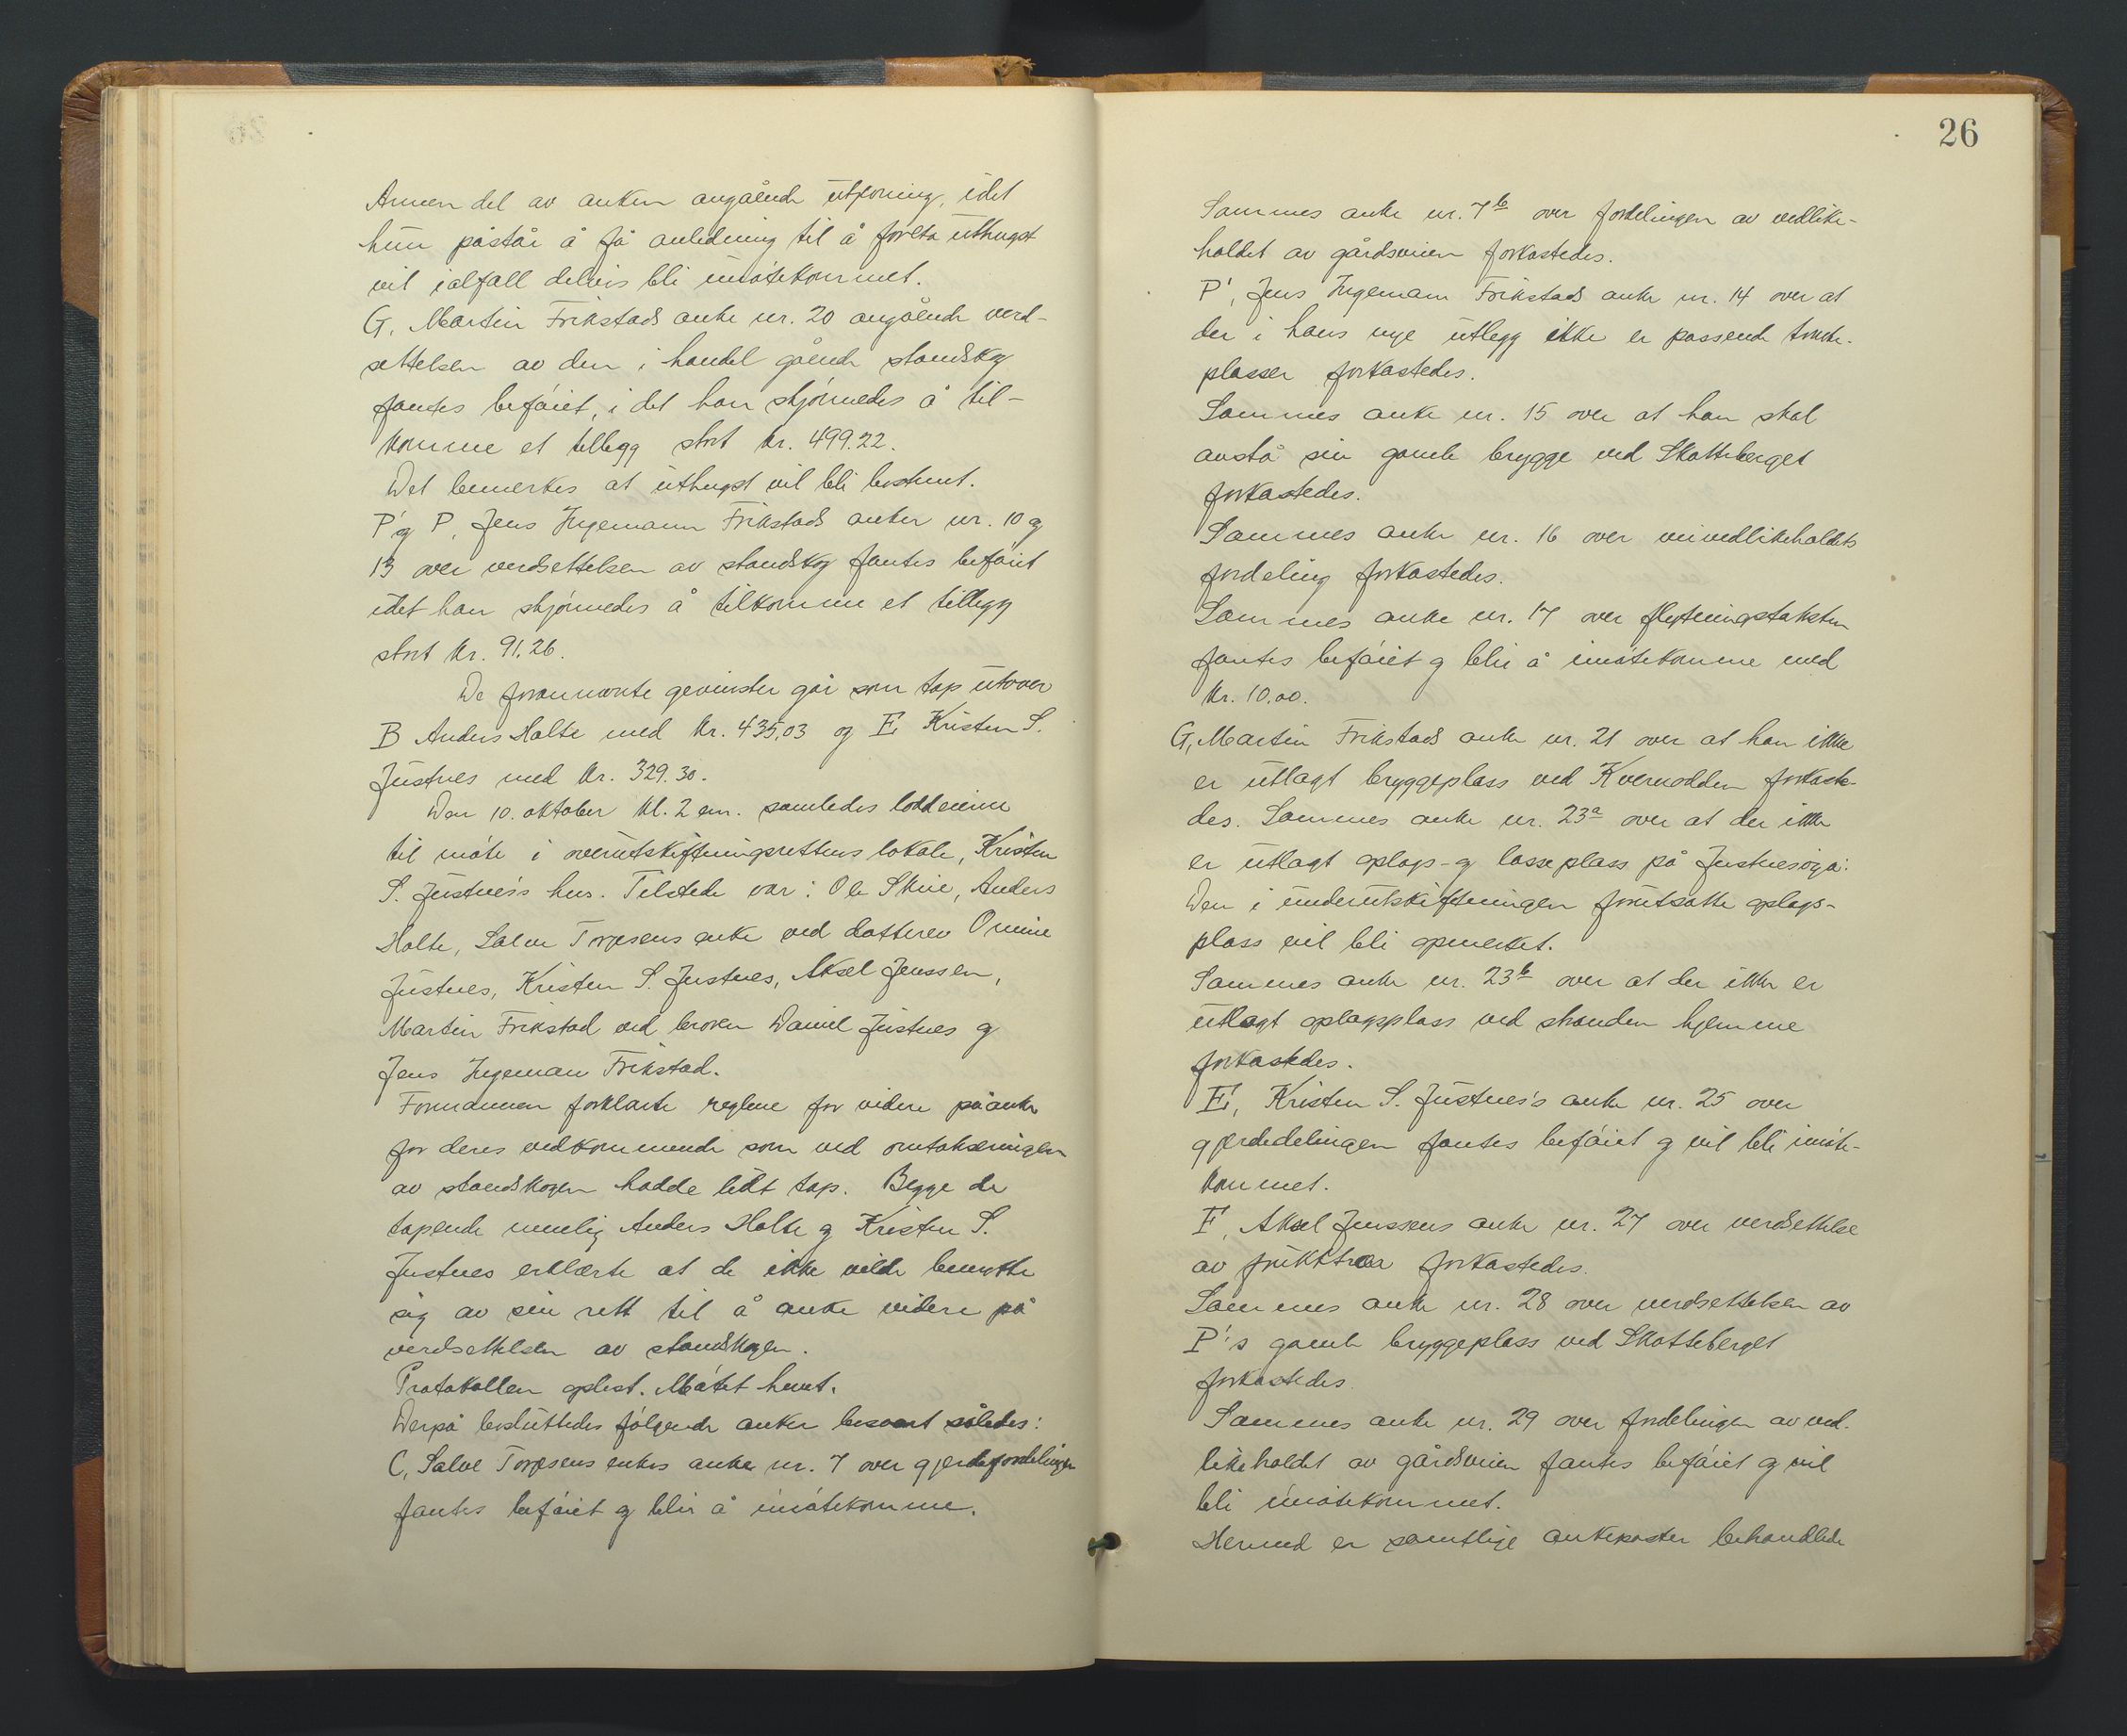 Annen del av anken angående utjevning, idet
hun påstår å få anledning til å foreta uthugst
vil ialfall delvis bli imøtekommet.
G, Martin Frikstads anke nr. 20 angående verd-
settelsen av den i handel gående standskog
fantes beføiet, i det han skjønnedes å til-
komme et tillegg stort kr. 499.22.
Det bemerkes at uthugst vil bli bestemt.
P' og P, Jens Ingemann Frikstads anker nr. 10 og
13 over verdsettelsen av standskog fantes beføiet
idet han skjønnedes å tilkomme et tillegg
stort kr. 91.26.
De forannevnte gevinster går som tap utover
B Anders Holte med kr. 435,03 og E, Kristen S.
Justnes med kr. 329.30.
Den 10. oktober kl. 2 em. samledes loddeierne
til møte i overutskiftningsrettens lokale, Kristen
S. Justnes's hus. Tilstede var: Ole Skeie, Anders
Holte, Salve Torjesens enke ved datteren Omine
Justnes, Kristen S. Justnes, Aksel Jenssen,
Martin Frikstad ved broren Daniel Justnes og
Jens Ingeman Frikstad.
Formannen forklarte reglene for videre påanke
for deres vedkommende som ved omtakseringen
av standskogen hadde lidt tap. Begge de
tapende nemlig Anders Holte og Kristen S.
Justnes erklærte at de ikke vilde benytte
sig av sin rett til å anke videre på
verdsettelsen av standskogen.
Protokollen oplest. Møtet hevet.
Derpå besluttedes følgende anker besvart således:
C, Salve Torjesens enkes anke nr. 7 over gjerdefordelingen
fantes beføiet og blir å imøtekomme.
26
Sammes anke nr. 7b over fordelingen av vedlike-
holdet av gårdsveien forkastedes.
P', Jens Ingemann Frikstads anke nr. 14 over at
der i hans nye utlegg ikke er passende tomte-
plasser forkastedes.
Sammes anke nr. 15 over at han skal
avstå sin gamle brygge ved Skotteberget
forkastedes.
Sammes anke nr. 16 over veivedlikeholdets
fordeling forkastedes.
Sammes anke nr. 17 over flytningstaksten
fantes beføiet og blir å imøtekomme med
kr. 10.00.
G, Martin Frikstads anke nr. 21 over at han ikke
er utlagt bryggeplass ved Kvernodden forkaste-
des. Sammes anke nr. 23a over at der ikke
er utlagt oplags- og lasseplass på Justnesøya:
Den i underutskiftningen forutsatte oplags-
plass vil bli opmerket.
Sammes anke nr. 23b over at der ikke er
utlagt oplagsplass ved stranden hjemme
forkastedes.
E, Kristen S. Justnes's anke nr. 25 over
gjerdedelingen fantes beføiet og vil bli imøte-
kommet.
F, Aksel Jenssens anke nr. 27 over verdsettelse
av frukttrær forkastedes.
Sammes anke nr. 28 over verdsettelsen av
P's gamle bryggeplass ved Skotteberget
forkastedes
Sammes anke nr. 29 over fordelingen av ved-
likeholdet av gårdsveien fantes beføiet og vil
bli imøtekommet.
Hermed er samtlige ankeposter behandlede